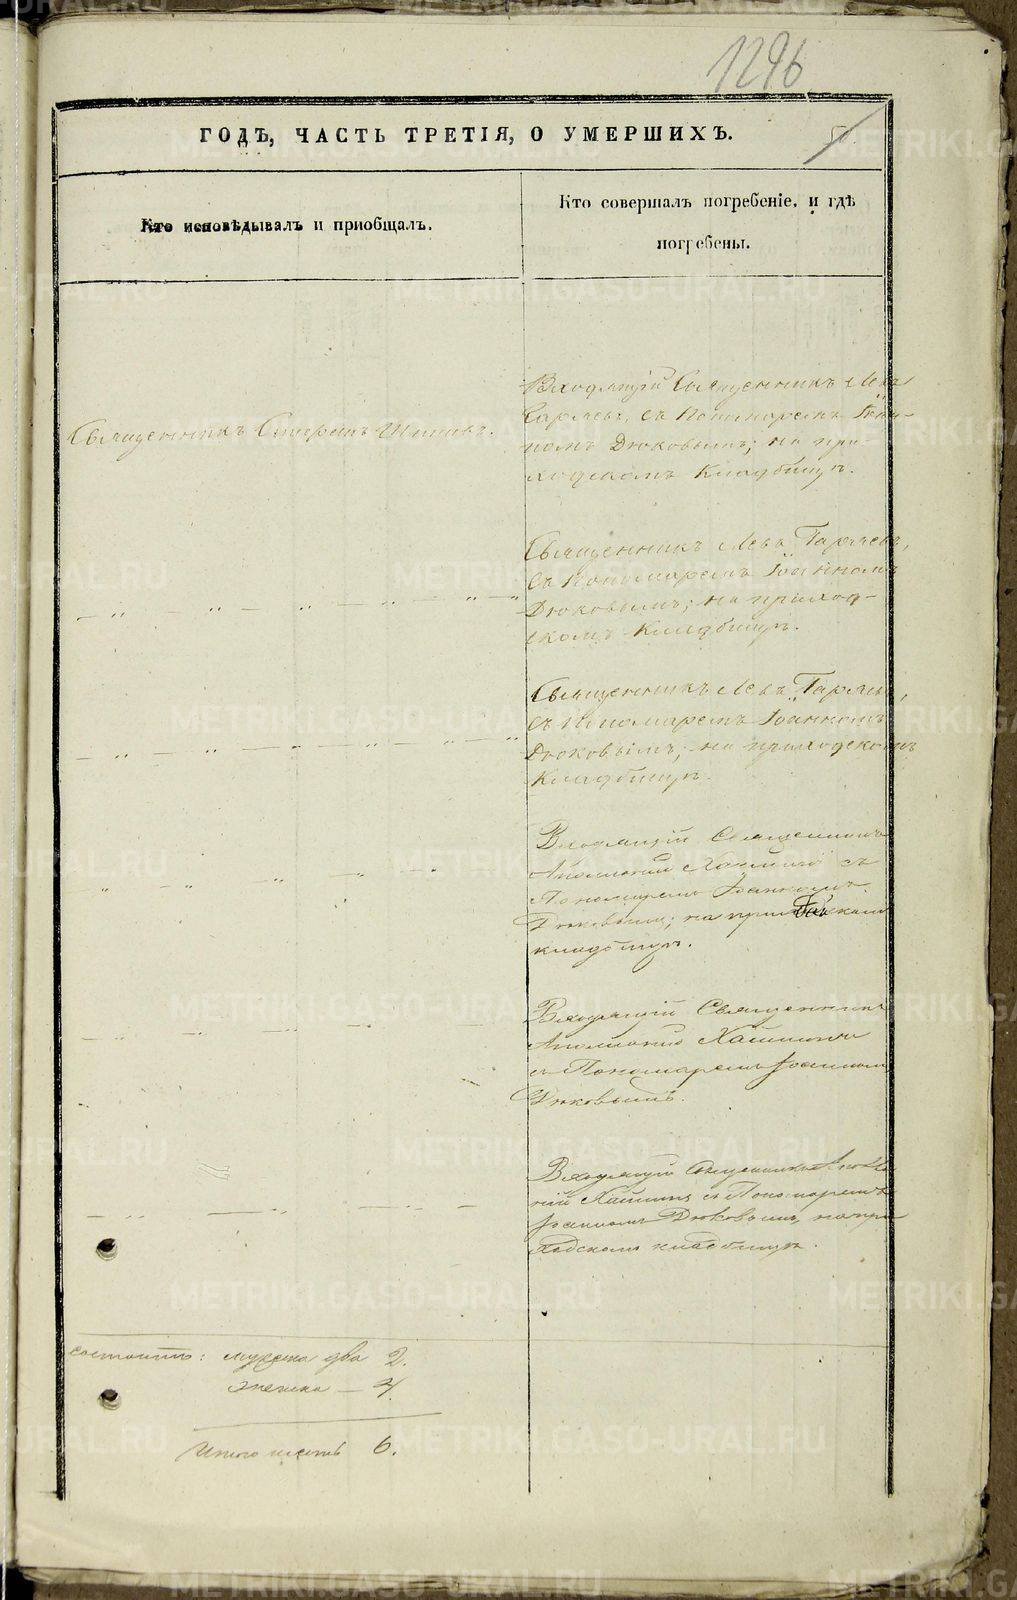 1296
ГОДЪ, ЧАСТЬ ТРЕТІЯ, О УМЕРШИХЪ.
Кто исповѣдывалъ и пріобщалъ.
Кто совершалъ погребеніе, и гдѣ
погребены.
Священникъ
Входящій Священникъ Левъ
Гаряевъ, съ Пономаремъ Іоан-
номъ Дюковымъ; на при-
ходскомъ Кладбищѣ.
Священникъ Левъ Гаряевъ,
съ Пономаремъ Іоанномъ
Дюковымъ; на приход-
скомъ Кладбищѣ.
Священникъ Левъ Гаряевъ,
съ Пономаремъ Іоанномъ
Дюковымъ; на приходскомъ
Кладбищѣ.
Входящій Священникъ
съ
Пономаремъ Іоанномъ
Дюковымъ; на приходскомъ
кладбищѣ.
Входящій Священникъ
съ Пономаремъ Іоанномъ
Дюковымъ.
Входящій Священникъ
съ Пономаремъ
Іоанномъ Дюковымъ, на при
ходскомъ кладбищѣ.
состоитъ: мужеска два 2.
женска — 4
Итого шесть 6.
METRIKI.GASO-URAL.RU